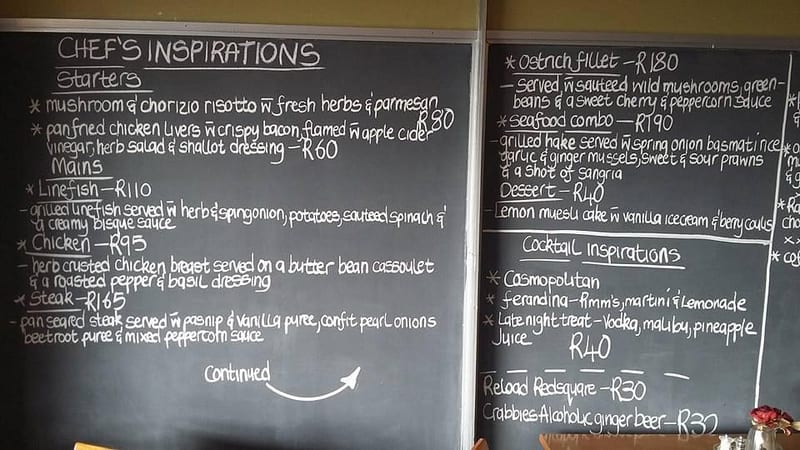 CHEF'S INSPIRATIONS
Starters
* mushroom & chorizio risotto w̄ fresh herbs & parmesan
R80
* panfried chicken livers w̄ crispy bacon, flamed w̄ apple cider
vinegar, herb salad & shallot dressing - R60
Mains
* Linefish - R110
- grilled linefish served w̄ herb & spingonion, potatoes, sauteed spinach &
a creamy bisque sauce
* Chicken - R95
- herb crusted chicken breast served on a butter bean cassoulet
& a roasted pepper & basil dressing
* Steak - R165
- pan seared steak served w̄ pasnip & vanilla puree, confit pearl onions
beetroot puree & mixed peppercorn sauce
Continued
* Ostrich fillet - R180
- served w̄ sauteed wild mushrooms, green-
beans & a sweet cherry & peppercorn sauce
* Seafood combo - R190
- grilled hake served w̄ spring onion basmati rice
garlic & ginger mussels, sweet & sour prawns
& a shot of sangria
Dessert - R40
- Lemon muesli cake w̄ vanilla icecream & berry coulis
Cocktail inspirations
* Cosmopolitan
* ferandina - Pimm's, martini & Lemonade
* Late night treat - Vodka, malibu, pineapple
Juice
R40
Reload Redsquare - R30
Crabbies Alcoholic ginger beer - R30